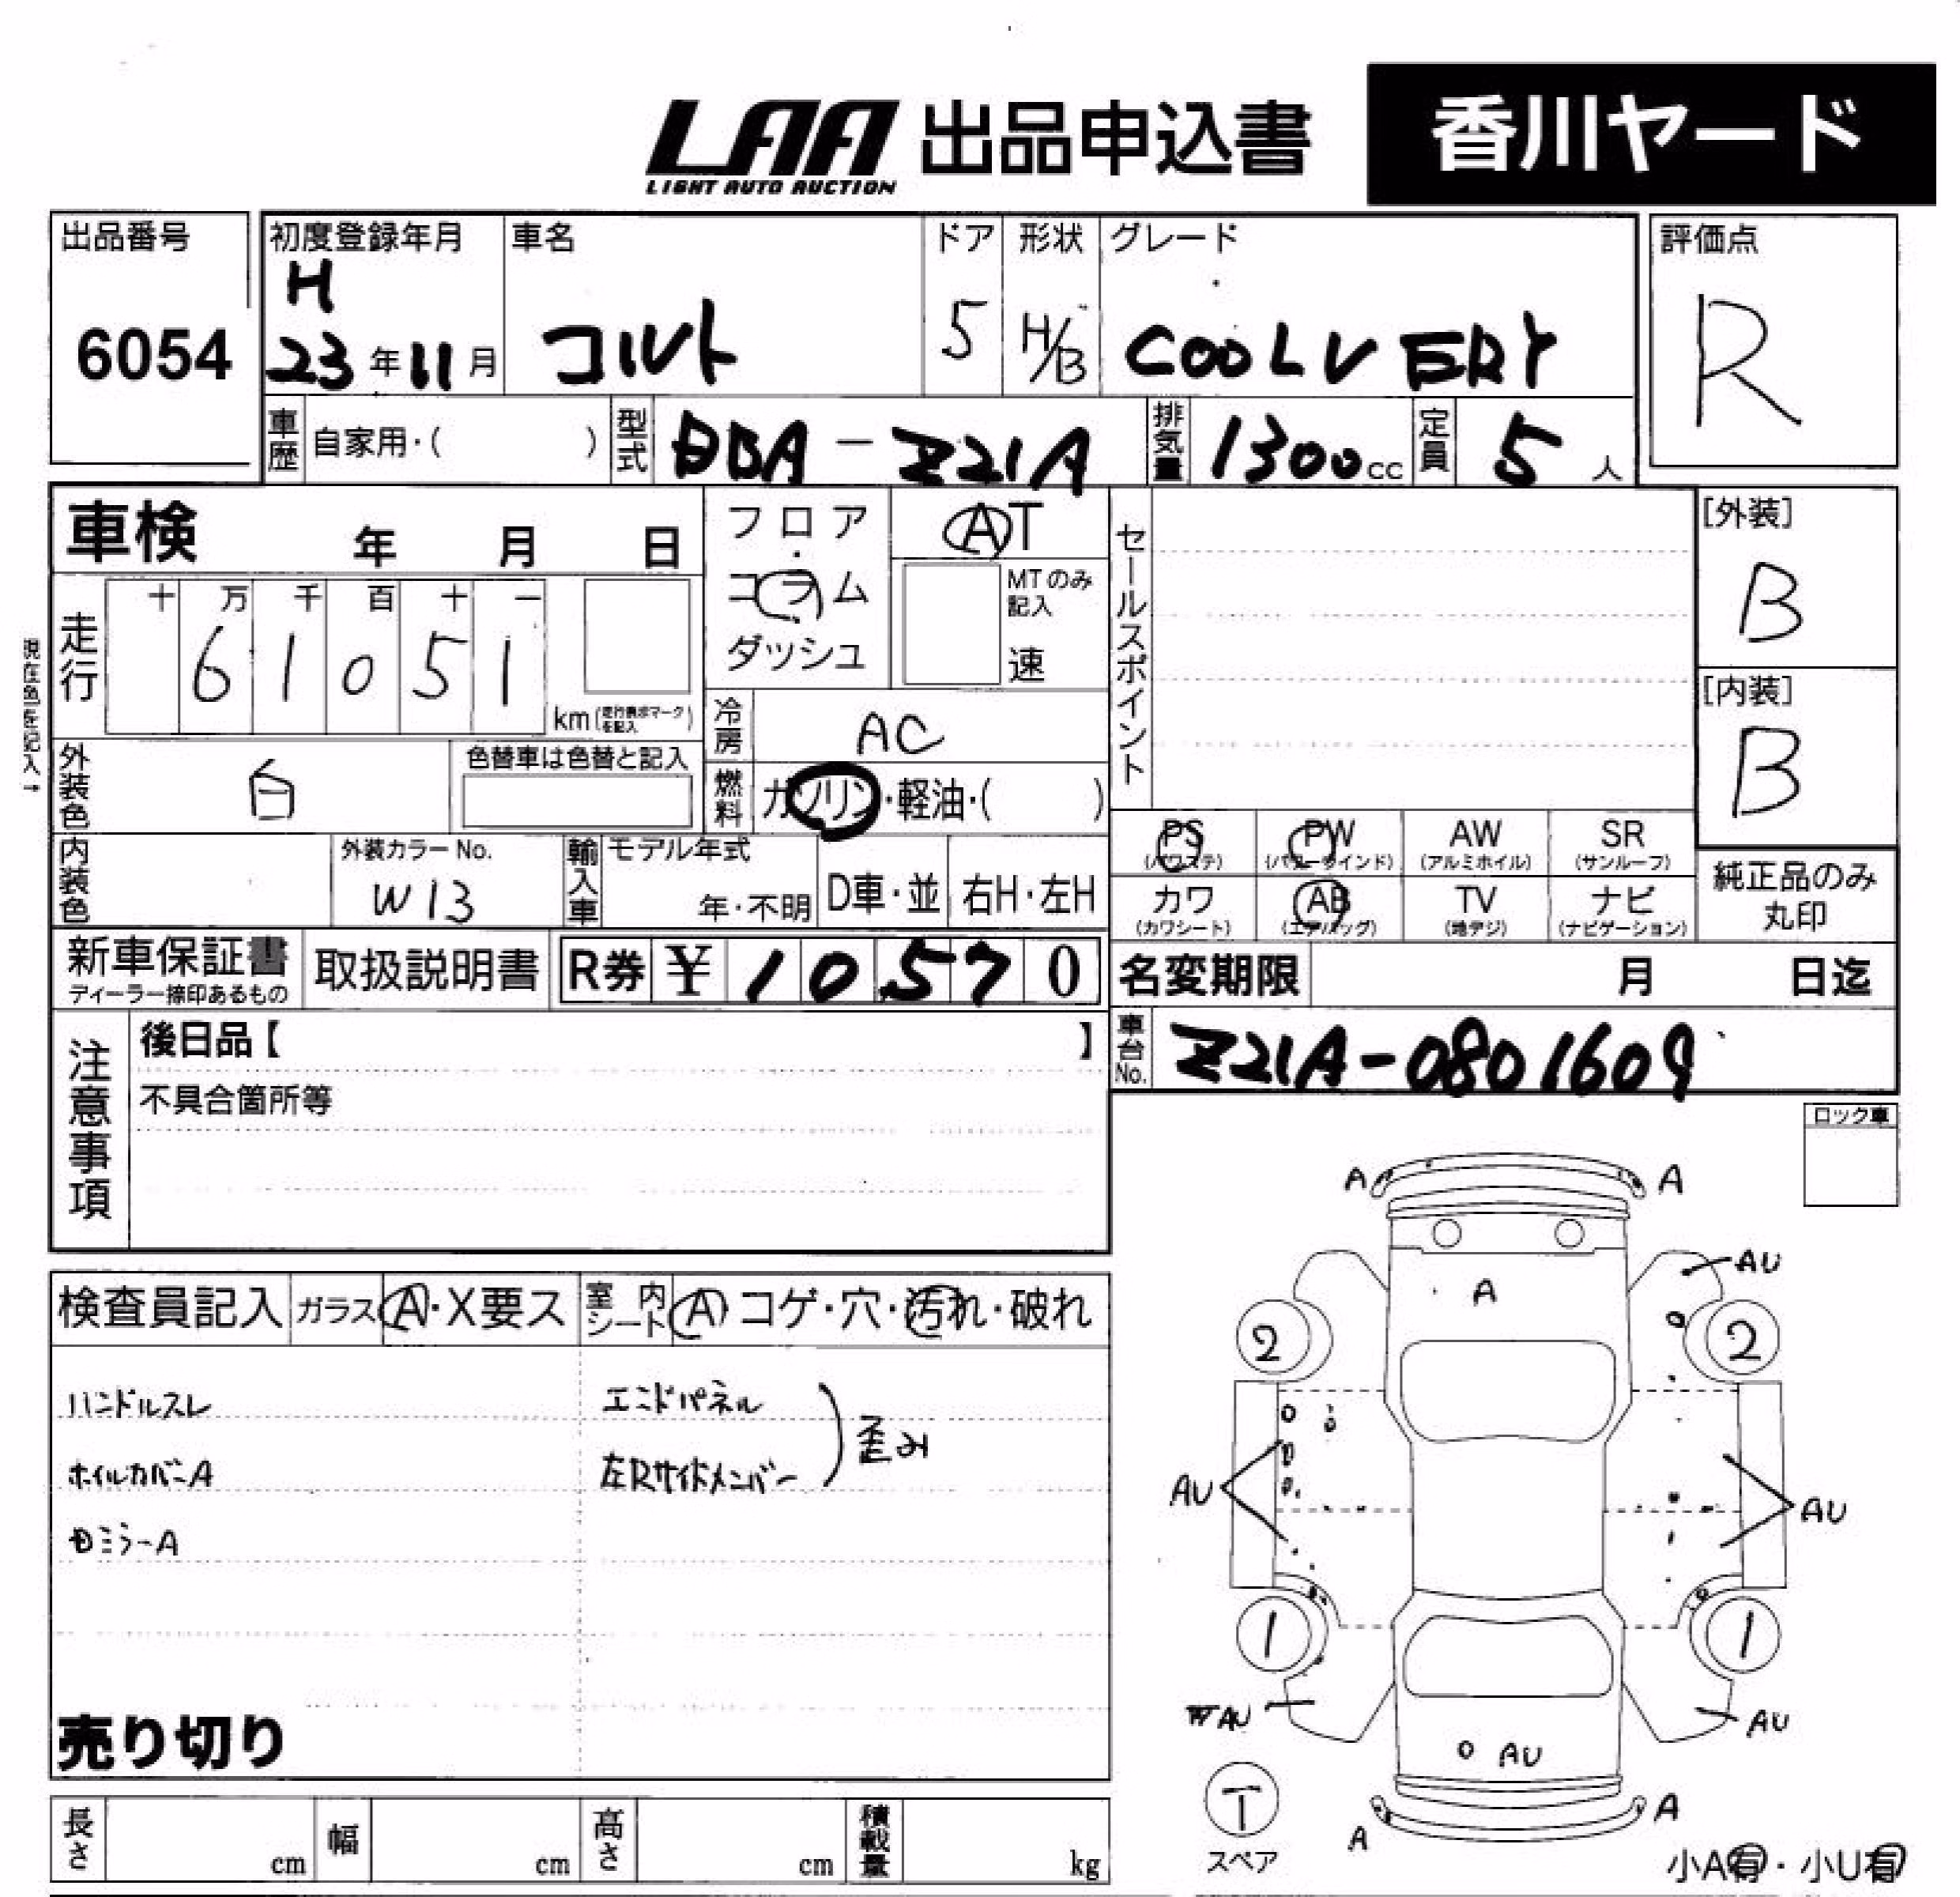 LAA 出品申込書 香川ヤード
LIGHT AUTO AUCTION
出品番号 初度登録年月 車名 ドア 形状 グレード 評価点
6054 H 23年11月 コルト 5 H/B COOL VERY R
車歴 自家用・( ) 型式 DBA-Z21A 排気量 1300cc 定員 5人
車検 年 月 日 フロア AT セールスポイント [外装]
コラム MTのみ記入 B
走行 十 万 千 百 十 一 ダッシュ 速
6 1 0 5 1 km [内装]
現在色を記入→ 冷房 AC B
外装色 白 色替車は色替と記入 燃料 ガソリン・軽油・( )
PS PW AW SR
(パワステ) (パワーウインド) (アルミホイル) (サンルーフ)
内装色 外装カラーNo. 輸入車 モデル年式 カワ AB TV ナビ 純正品のみ
W13 年・不明 D車・並 右H・左H (カワシート) (エアバッグ) (地デジ) (ナビゲーション) 丸印
新車保証書 取扱説明書 R券 ¥ 1 0 5 7 0 名変期限 月 日迄
ディーラー捺印あるもの
注意事項 後日品【 】 車台No. Z21A-0801609
不具合箇所等
ロック車
A A
AU
A
検査員記入 ガラス A・X要ス 室内シート A コゲ・穴・汚れ・破れ
2 2
ハンドルスレ エンドパネル
歪み
ホイルカバーA 左Rサイドメンバー
AU AU
ミラーA
1 1
AU AU
売り切り
AU
T
スペア
A A
長さ cm 幅 cm 高さ cm 積載量 kg
小A有・小U有